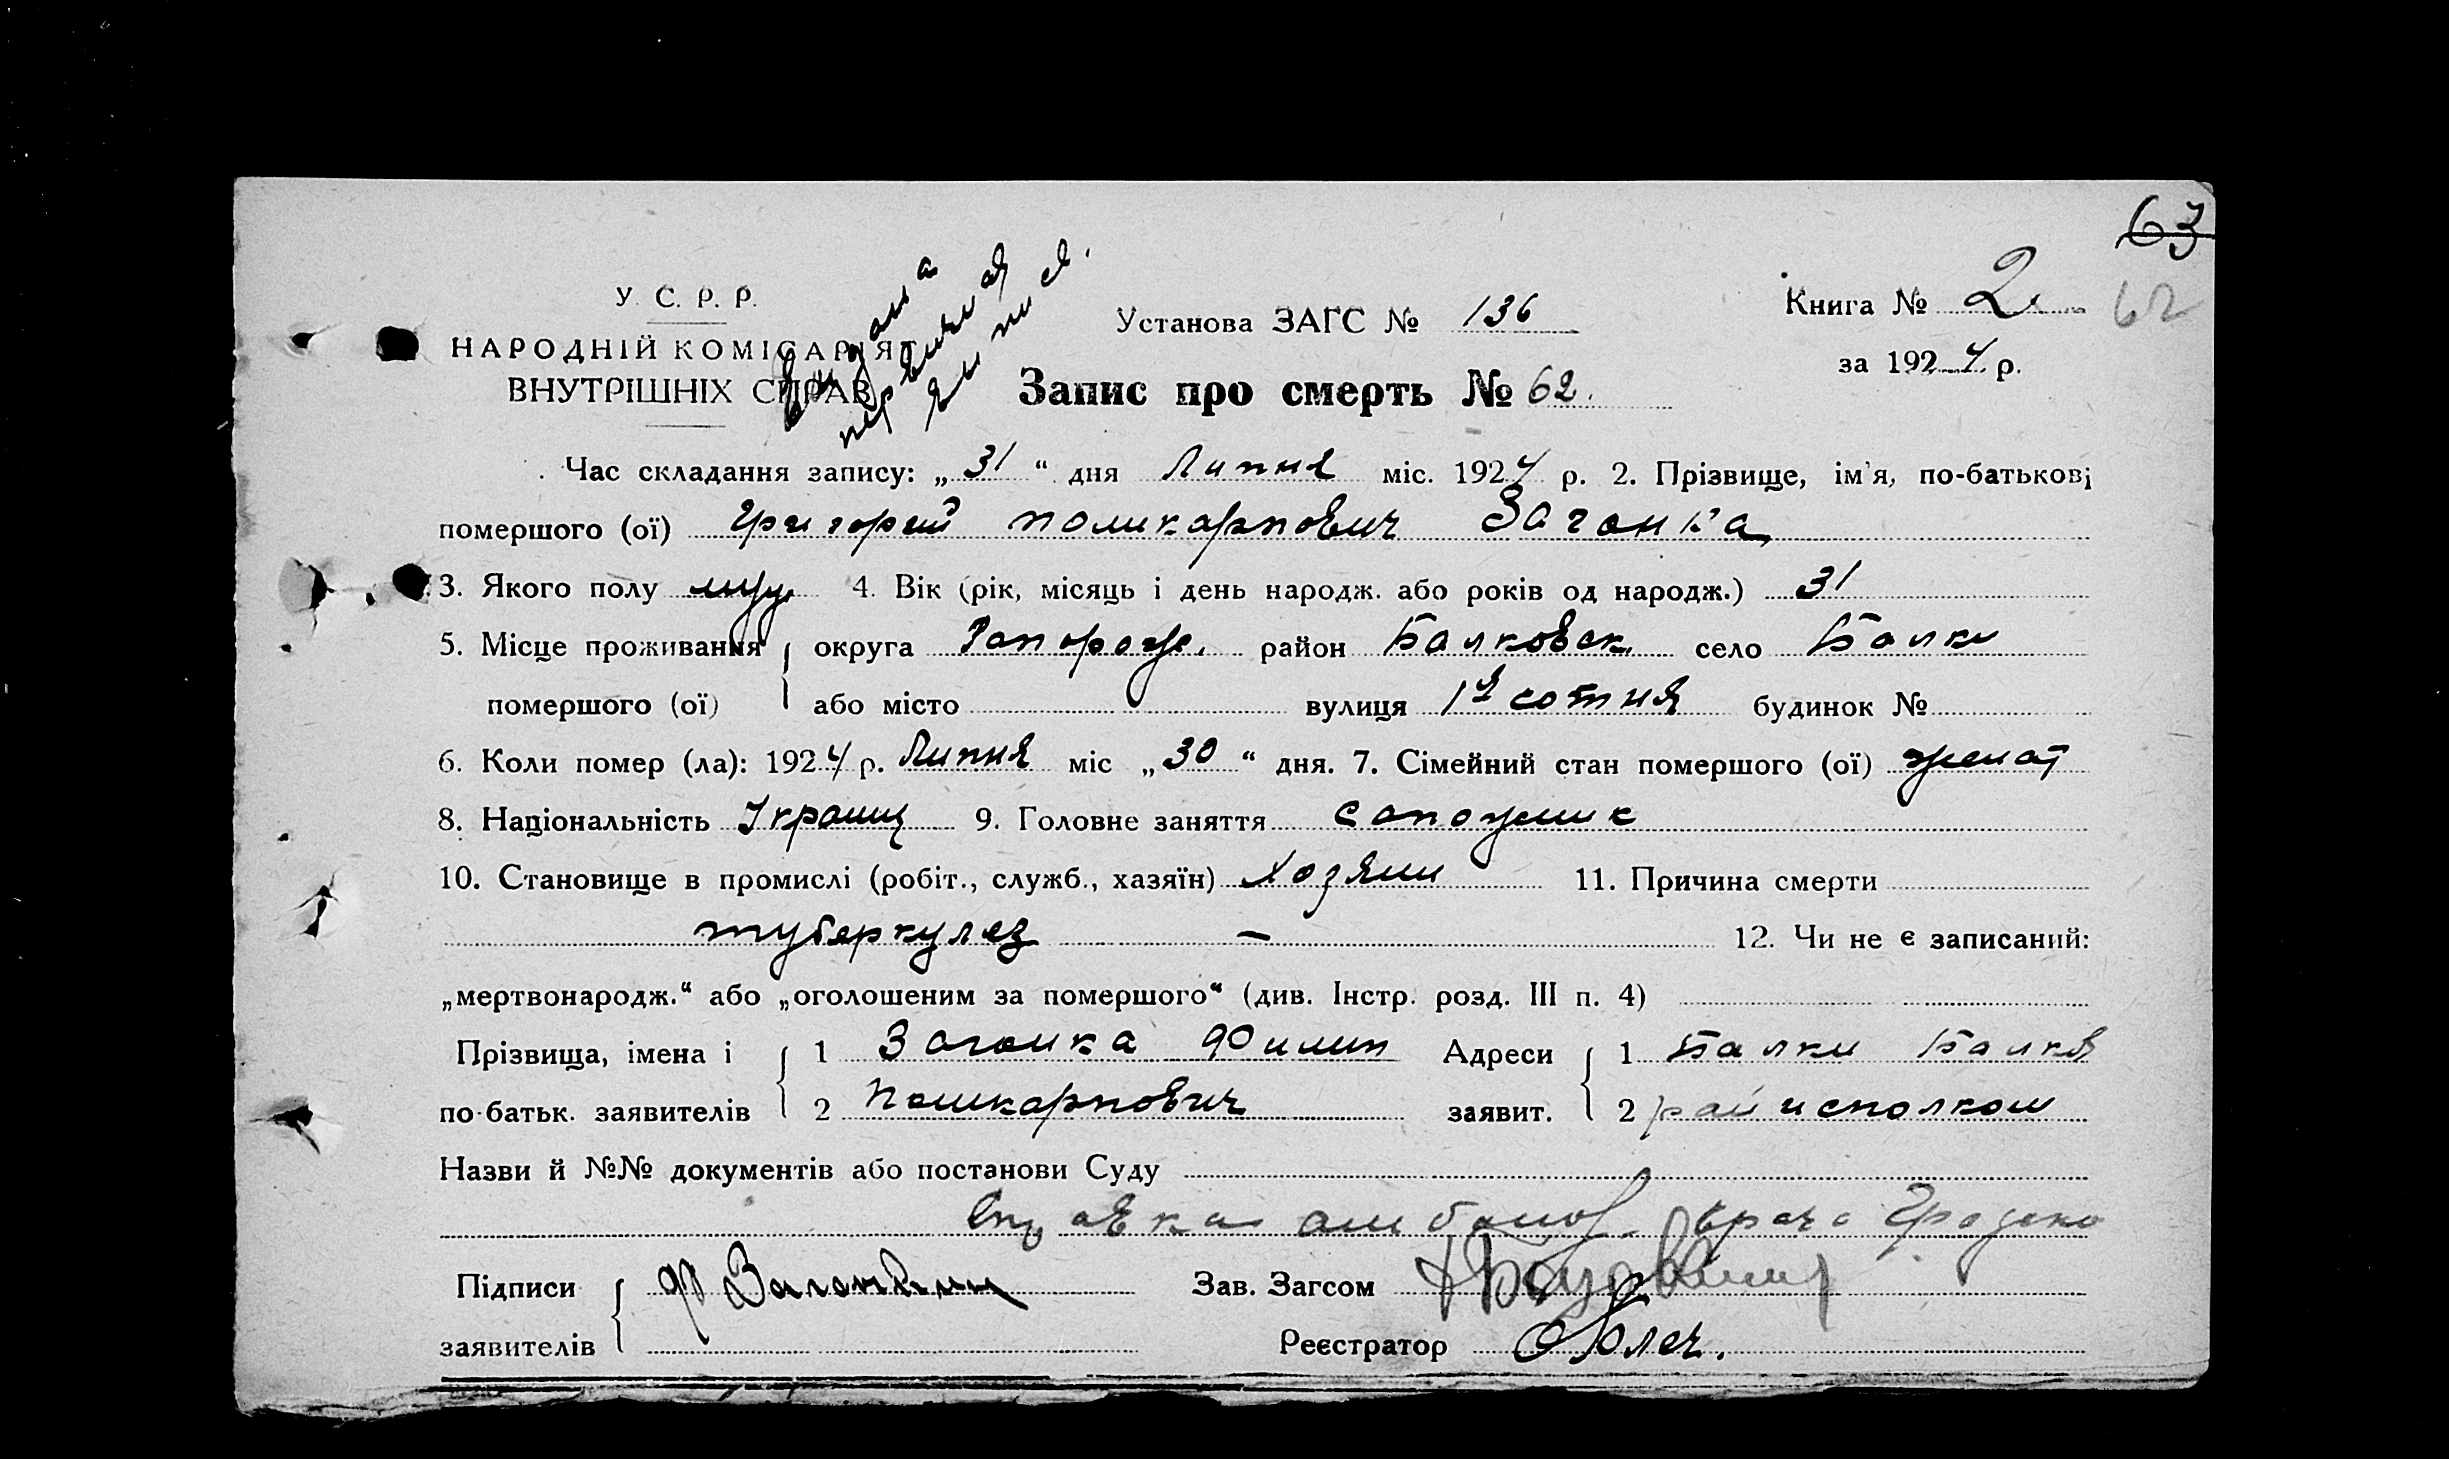 63
62
У. С. Р. Р.
НАРОДНІЙ КОМІСАРІЯТ
ВНУТРІШНІХ СПРАВ
Видана
первична
выпись.
Установа ЗАГС № 136
Книга № 2
за 1924 р.
Запис про смерть № 62.
Час складання запису: „31“ дня Липня міс. 1924 р. 2. Прізвище, ім'я, по-батькові
помершого (ої) Григорий поликарпович Загонка
3. Якого полу муж 4. Вік (рік, місяць і день народж. або років од народж.) 31
5. Місце проживання округа Запорож. район Балковск. село Балки
помершого (ої) або місто вулиця 1я сотня будинок №
6. Коли помер (ла): 1924 р. Липня міс „30“ дня. 7. Сімейний стан помершого (ої) женат
8. Національність Украинц 9. Головне заняття сапожник
10. Становище в промислі (робіт., служб., хазяїн) Хозяин 11. Причина смерти
туберкулез — 12. Чи не є записаний:
„мертвонародж.“ або „оголошеним за помершого“ (див. Інстр. розд. III п. 4)
Прізвища, імена і 1 Загонка Филип Адреси 1 Балки Балков
по-батьк. заявителів 2 Поликарпович заявит. 2 райисполком
Назви й №№ документів або постанови Суду
Справка амбулат. врача
Підписи Ф Загонка Зав. Загсом
заявителів Реєстратор